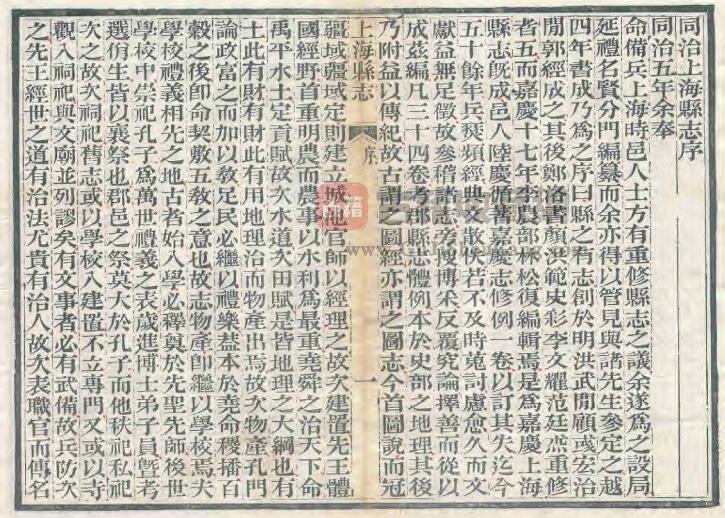 同治上海縣志序
同治五年余奉
命備兵上海時邑人士方有重修縣志之議余遂爲之設局
延禮名賢分門編纂而余亦得以管見與諸先生參定之越
四年書成乃爲之序曰縣之有志創於明洪武閒顧彧宏治
閒郭經成之其後鄭洛書顏洪範史彩李文耀范廷杰重修
者五而嘉慶十七年李農部林松復編輯焉是爲嘉慶上海
縣志旣成邑人陸慶循著嘉慶志修例一卷以訂其失迄今
五十餘年兵燹頻經典文散佚若不及時蒐討慮愈久而文
獻益無足徵故參稽者志旁搜博采反覆究論擇善而從以
成茲編凡三十四卷考郡縣志體例本於史部之地理其後
乃附益以傳紀故古謂之圖經亦謂之圖志今首圖說而冠
上海縣志
序
一
疆域疆域定則建立城池官師以經理之故次建置先王體
國經野首重明農而農事以水利爲最重堯舜之治天下命
禹平水土定貢賦故次水道次田賦是皆地理之大綱也有
土此有財有財此有用地理治而物產出焉故次物產孔門
論政富之而加以敎足民必繼以禮樂葢本於堯命稷播百
穀之後卽命契敷五敎之意也故志物產卽繼以學校焉夫
學校禮義相先之地古者始入學必釋奠於先聖先師後世
學校中崇祀孔子爲萬世禮義之表歲進博士弟子員曁考
選佾生皆以襄祭也郡邑之祭莫大於孔子而他秩祀私祀
次之故次祠祀舊志或以學校入建置不立專門又或以寺
觀入祠祀與文廟並列謬矣有文事者必有武備故兵防次
之先王經世之道有治法尤貴有治人故次表職官而傳名